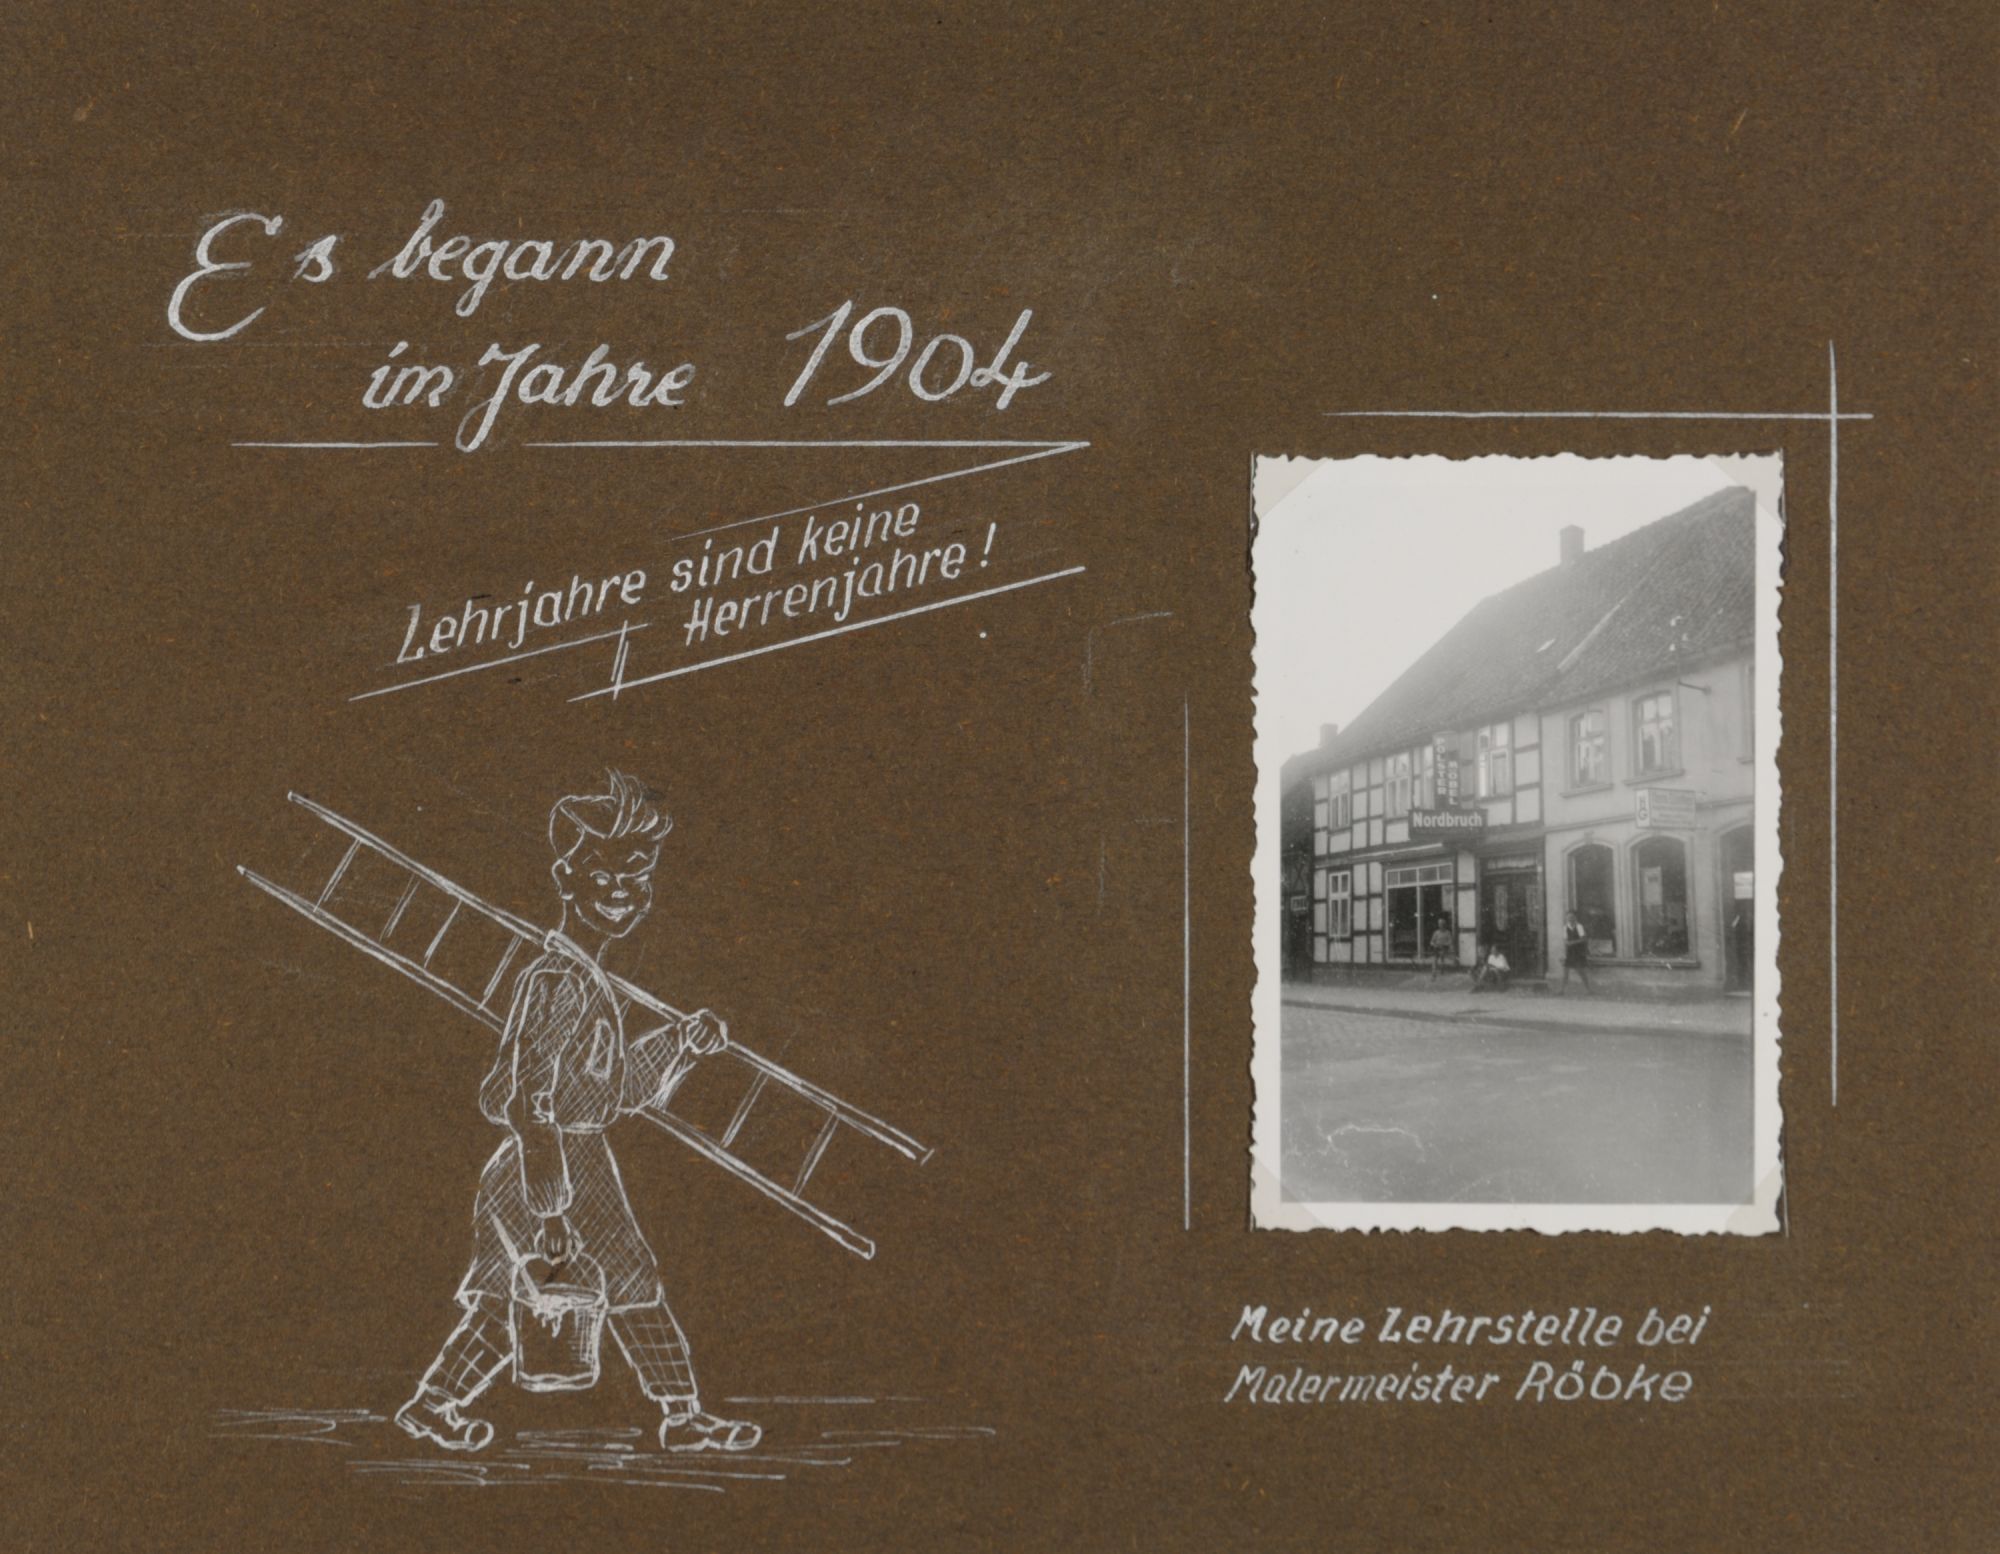 Es begann
im Jahre 1904
Lehrjahre sind keine
Herrenjahre!
POLSTER
MÖBEL
Nordbruch
HG
Meine Lehrstelle bei
Malermeister Röbke